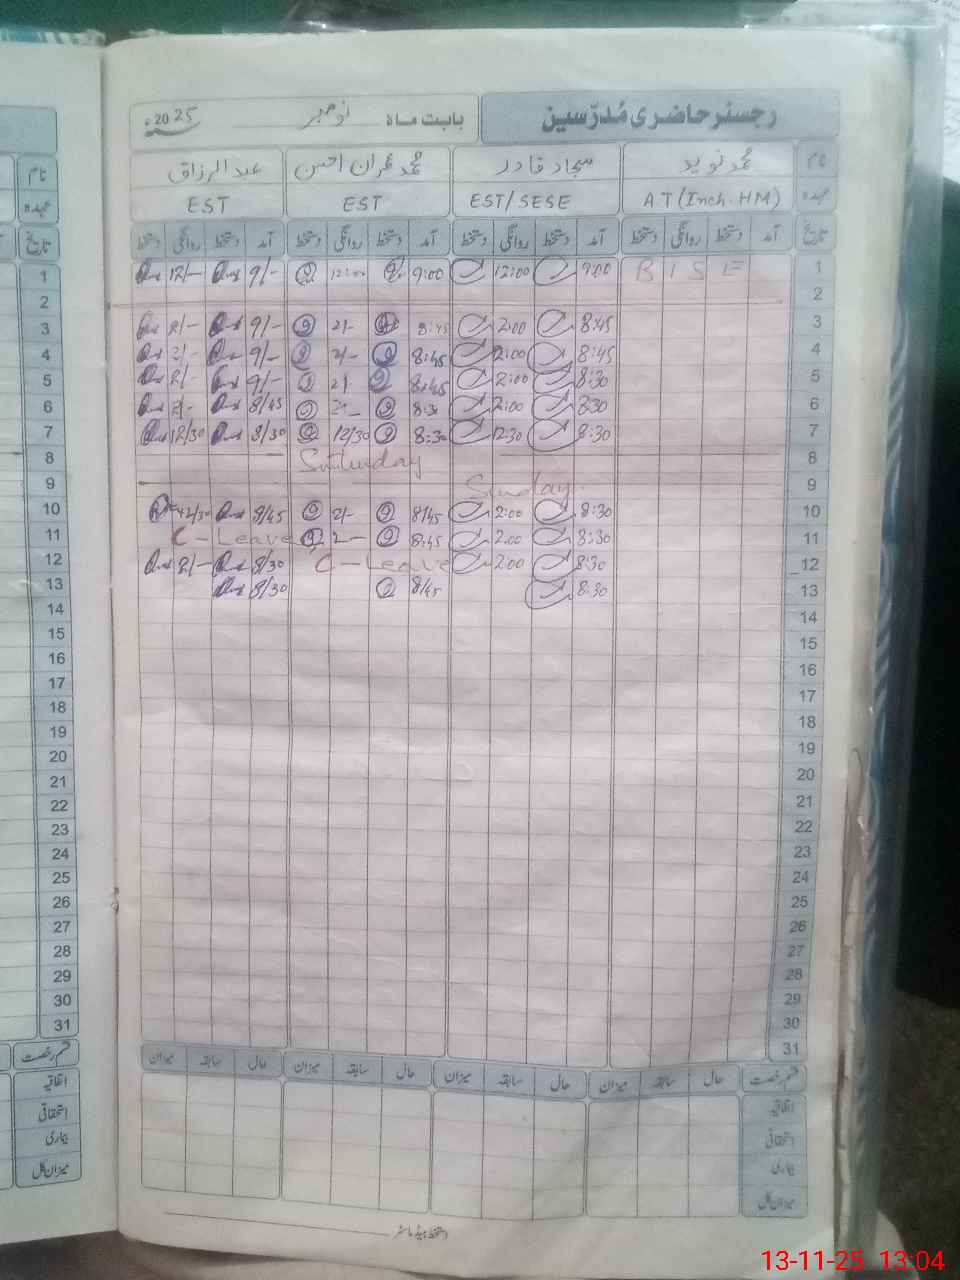 رجسٹر حاضری مُدرّسین
بابت ماہ نومبر 2025ء
نام محمد نوید سجاد قادر محمد عمران احسن عبدالرزاق
عہدہ A.T (Inch. HM) EST/SESE EST EST
تاریخ آمد دستخط روانگی دستخط آمد دستخط روانگی دستخط آمد دستخط روانگی دستخط آمد دستخط روانگی دستخط
1 B I S E 9:00 12:00 9:00 12:00 9/- 12/-
2
3 8:45 2:00 8:45 2/- 9/- 2/-
4 8:45 2:00 8:45 2/- 9/- 2/-
5 8:30 2:00 8:45 2/- 9/- 2/-
6 8:30 2:00 8:30 2/- 8/45 2/-
7 8:30 12:30 8:30 12/30 8/30 12/30
8 Saturday
9 Sunday
10 8:30 2:00 8/45 2/- 8/45
11 8:30 2:00 8:45 2- C-Leave
12 8:30 2:00 C-Leave 8/30 2/-
13 8:30 8/45 8/30
14
15
16
17
18
19
20
21
22
23
24
25
26
27
28
29
30
31
قسم رخصت حال سابقہ میزان حال سابقہ میزان حال سابقہ میزان حال سابقہ میزان
اتفاقیہ
استحقاقی
بیماری
میزان کل
دستخط ہیڈ ماسٹر
نام
عہدہ
تاریخ
1
2
3
4
5
6
7
8
9
10
11
12
13
14
15
16
17
18
19
20
21
22
23
24
25
26
27
28
29
30
31
قسم رخصت
اتفاقیہ
استحقاقی
بیماری
میزان کل
13-11-25 13:04